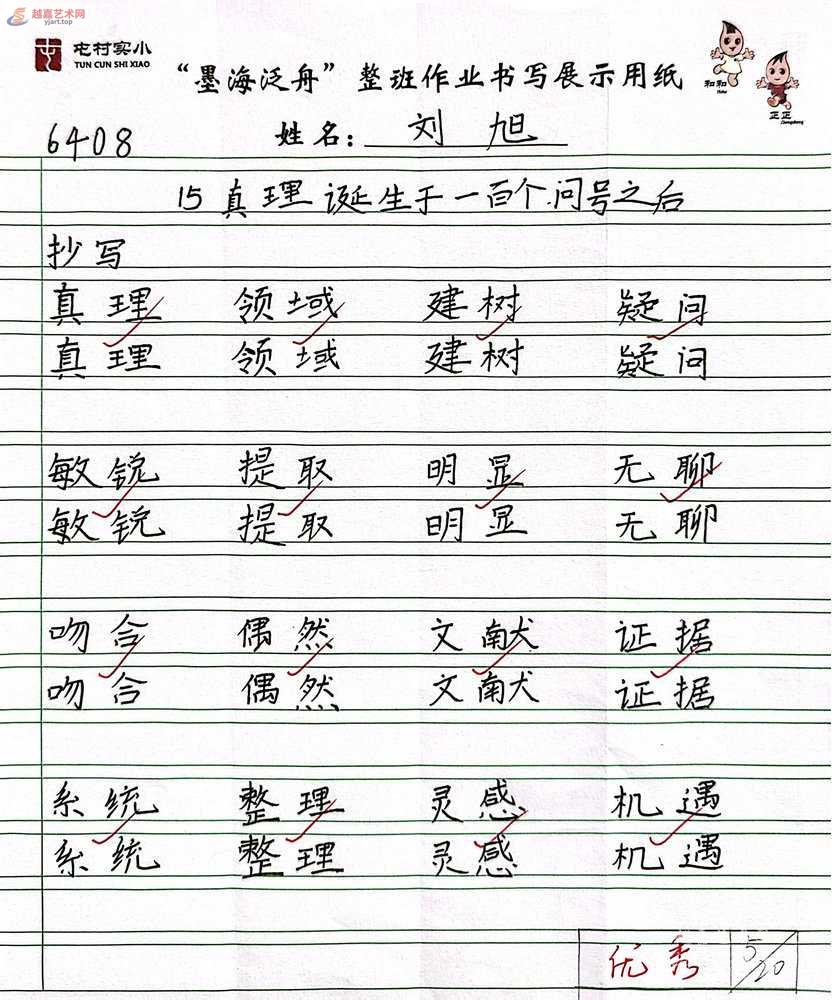 越嘉艺术网
yjart.top
屯村实小
TUN CUN SHI XIAO
“墨海泛舟”整班作业书写展示用纸
和和
Hehe
正正
Zhengzheng
6408
姓名：刘旭
15 真理诞生于一百个问号之后
抄写
真理 领域 建树 疑问
真理 领域 建树 疑问
敏锐 提取 明显 无聊
敏锐 提取 明显 无聊
吻合 偶然 文献 证据
吻合 偶然 文献 证据
系统 整理 灵感 机遇
系统 整理 灵感 机遇
优秀 5/20